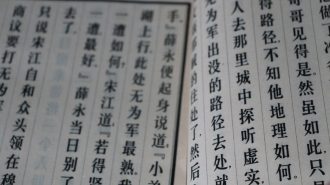 哥哥见得是。然虽如此,只
得路径,不知他地理如何。
人去那里城中探听虚实,
无为军出没的路径去处,就
的住处了,然后
手。』薛永便起身说道:『小弟
湖上行,此处无为军最熟。
一遭如何?』宋江道:『若得贤
一遭最好。』薛永当日别了
去了。
只说宋江自和众头领在穆
商议要打无为军